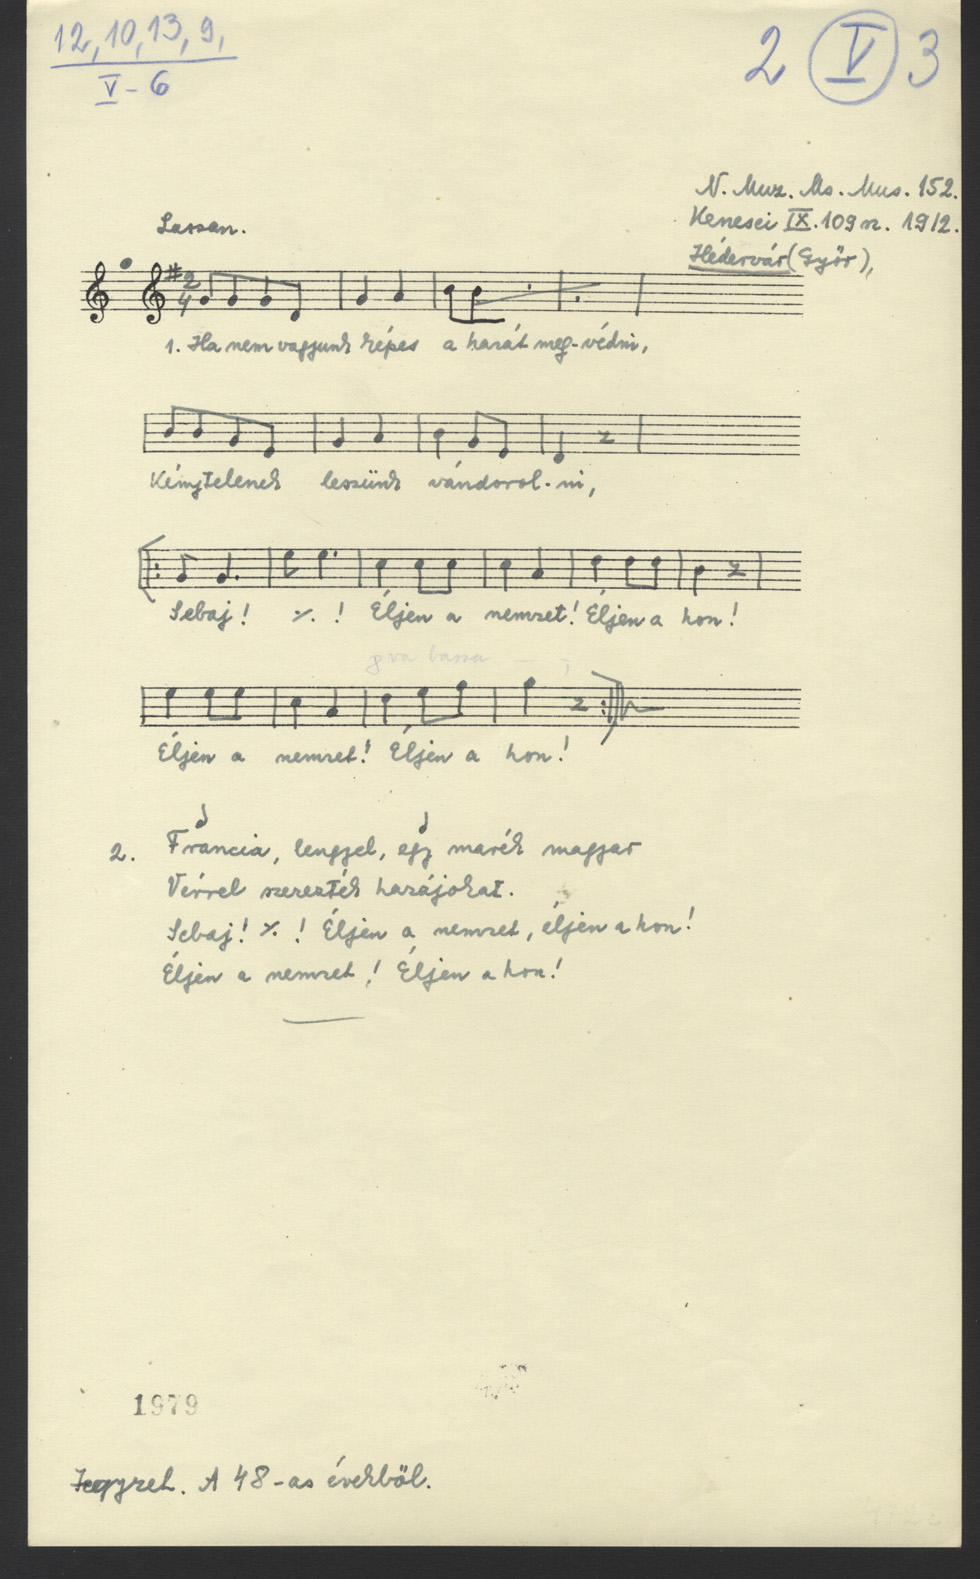 12, 10, 13, 9,
V - 6
2 V 3
N. Muz. Ms. Mus. 152.
Kenesei IX. 109 sz. 1912.
Hédervár (Győr),
Lassan.
2
4
1. Ha nem vagyunk képes a hazát meg-védni,
Kénytelenek leszünk vándorol-ni,
Sebaj! ٪ ! Éljen a nemzet! Éljen a hon!
8va bassa
Éljen a nemzet! Éljen a hon!
2. Francia, lengyel, egy marék magyar
Vérrel szerezték hazájokat.
Sebaj! ٪ ! Éljen a nemzet, éljen a hon!
Éljen a nemzet! Éljen a hon!
1979
Jegyzet. A 48-as évekből.